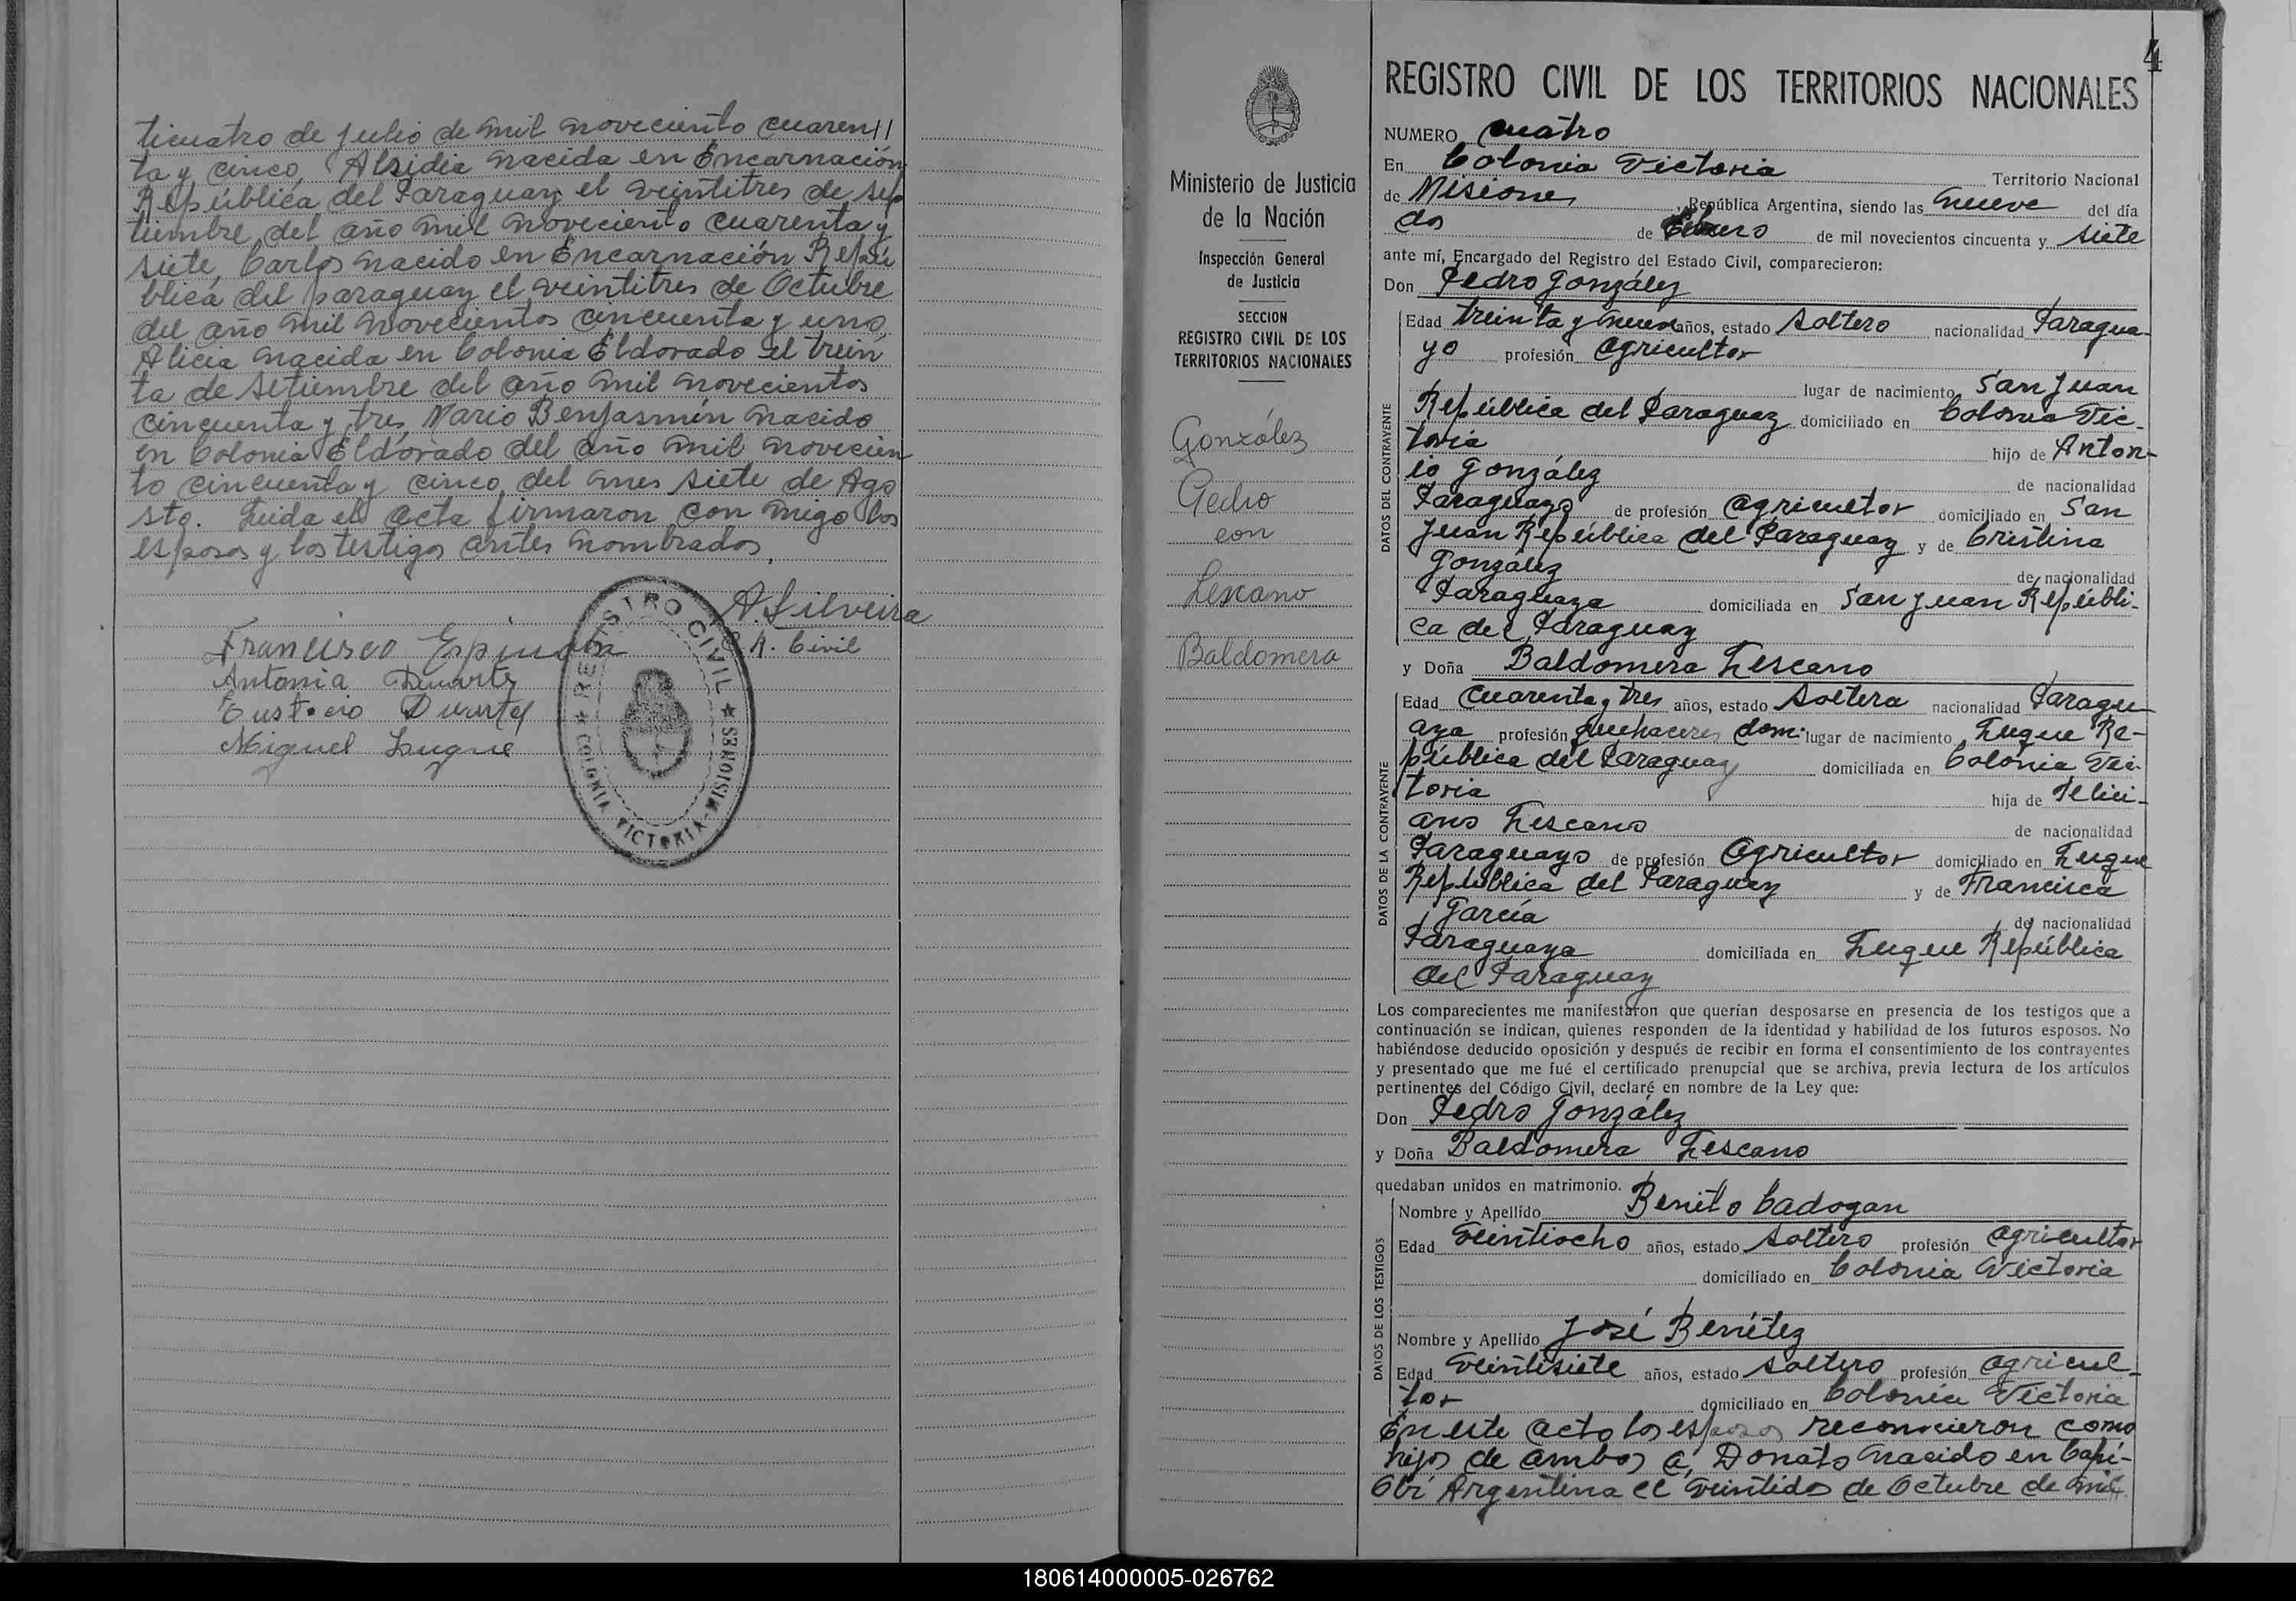 ticuatro de Julio de mil novecuento cuaren//
ta y cinco, Alsidia nacida en Encarnación
República del Paraguay el veintitres de sep
tiembre del año mil noveciento cuarenta y
siete, Carlos nacido en Encarnación Repú
blica del paraguay el veintitres de Octubre
del año mil novecientos cincuenta y uno,
Alicia nacida en Colonia Eldorado el trein
ta de setiembre del año mil novecientos
cincuenta y tres, Mario Benjasmín nacido
en Colonia Eldorado del año mil novecien
to cincuenta y cinco del mes siete de Ago
sto. Leida el acta firmaron con migo los
esposos y los testigos antes nombrados.
A. Silveira
R. Civil
Francisco Espindola
Antonia Duarte
Eustacio Duarte
Miguel Luque
REGISTRO CIVIL
COLONIA VICTORIA-MISIONES
Ministerio de Justicia
de la Nación
Inspección General
de Justicia
SECCION
REGISTRO CIVIL DE LOS
TERRITORIOS NACIONALES
González
Pedro
con
Lescano
Baldomera
4
REGISTRO CIVIL DE LOS TERRITORIOS NACIONALES
NUMERO cuatro
En Colonia Victoria Territorio Nacional
de Misiones, República Argentina, siendo las nueve del día
dos de de mil novecientos cincuenta y siete
ante mí, Encargado del Registro del Estado Civil, comparecieron:
Don Pedro González
DATOS DEL CONTRAYENTE
Edad treinta y nueve años, estado soltero nacionalidad Paragua-
yo profesión agricultor
lugar de nacimiento San Juan
República del Paraguay domiciliado en Colonia Vic-
toria hijo de Anton-
io González de nacionalidad
Paraguayo de profesión agricultor domiciliado en San
Juan República del Paraguay y de Cristina
González de nacionalidad
Paraguaya domiciliada en San Juan Repúbli-
ca del Paraguay
y Doña Baldomera Lescano
DATOS DE LA CONTRAYENTE
Edad Cuarenta y tres años, estado soltera nacionalidad Paragu-
aya profesión quehaceres dom. lugar de nacimiento Luque Re-
pública del Paraguay domiciliada en Colonia Vic-
toria hija de Felici-
ano Lescano de nacionalidad
Paraguayo de profesión agricultor domiciliado en Luque
República del Paraguay y de Francisca
García de nacionalidad
Paraguaya domiciliada en Luque República
del Paraguay
Los comparecientes me manifestaron que querían desposarse en presencia de los testigos que a
continuación se indican, quienes responden de la identidad y habilidad de los futuros esposos. No
habiéndose deducido oposición y después de recibir en forma el consentimiento de los contrayentes
y presentado que me fué el certificado prenupcial que se archiva, previa lectura de los artículos
pertinentes del Código Civil, declaré en nombre de la Ley que:
Don Pedro González
y Doña Baldomera Lescano
quedaban unidos en matrimonio.
DATOS DE LOS TESTIGOS
Nombre y Apellido Benito Cadogan
Edad veintiocho años, estado soltero profesión agricultor
domiciliado en Colonia Victoria
Nombre y Apellido José Benítez
Edad veintisiete años, estado soltero profesión agricul-
tor domiciliado en Colonia Victoria
En este acto los esposos reconocieron como
hijos de ambos a, Donato nacido en Capi-
Obí Argentina el veintidos de Octubre de mil
180614000005-026762